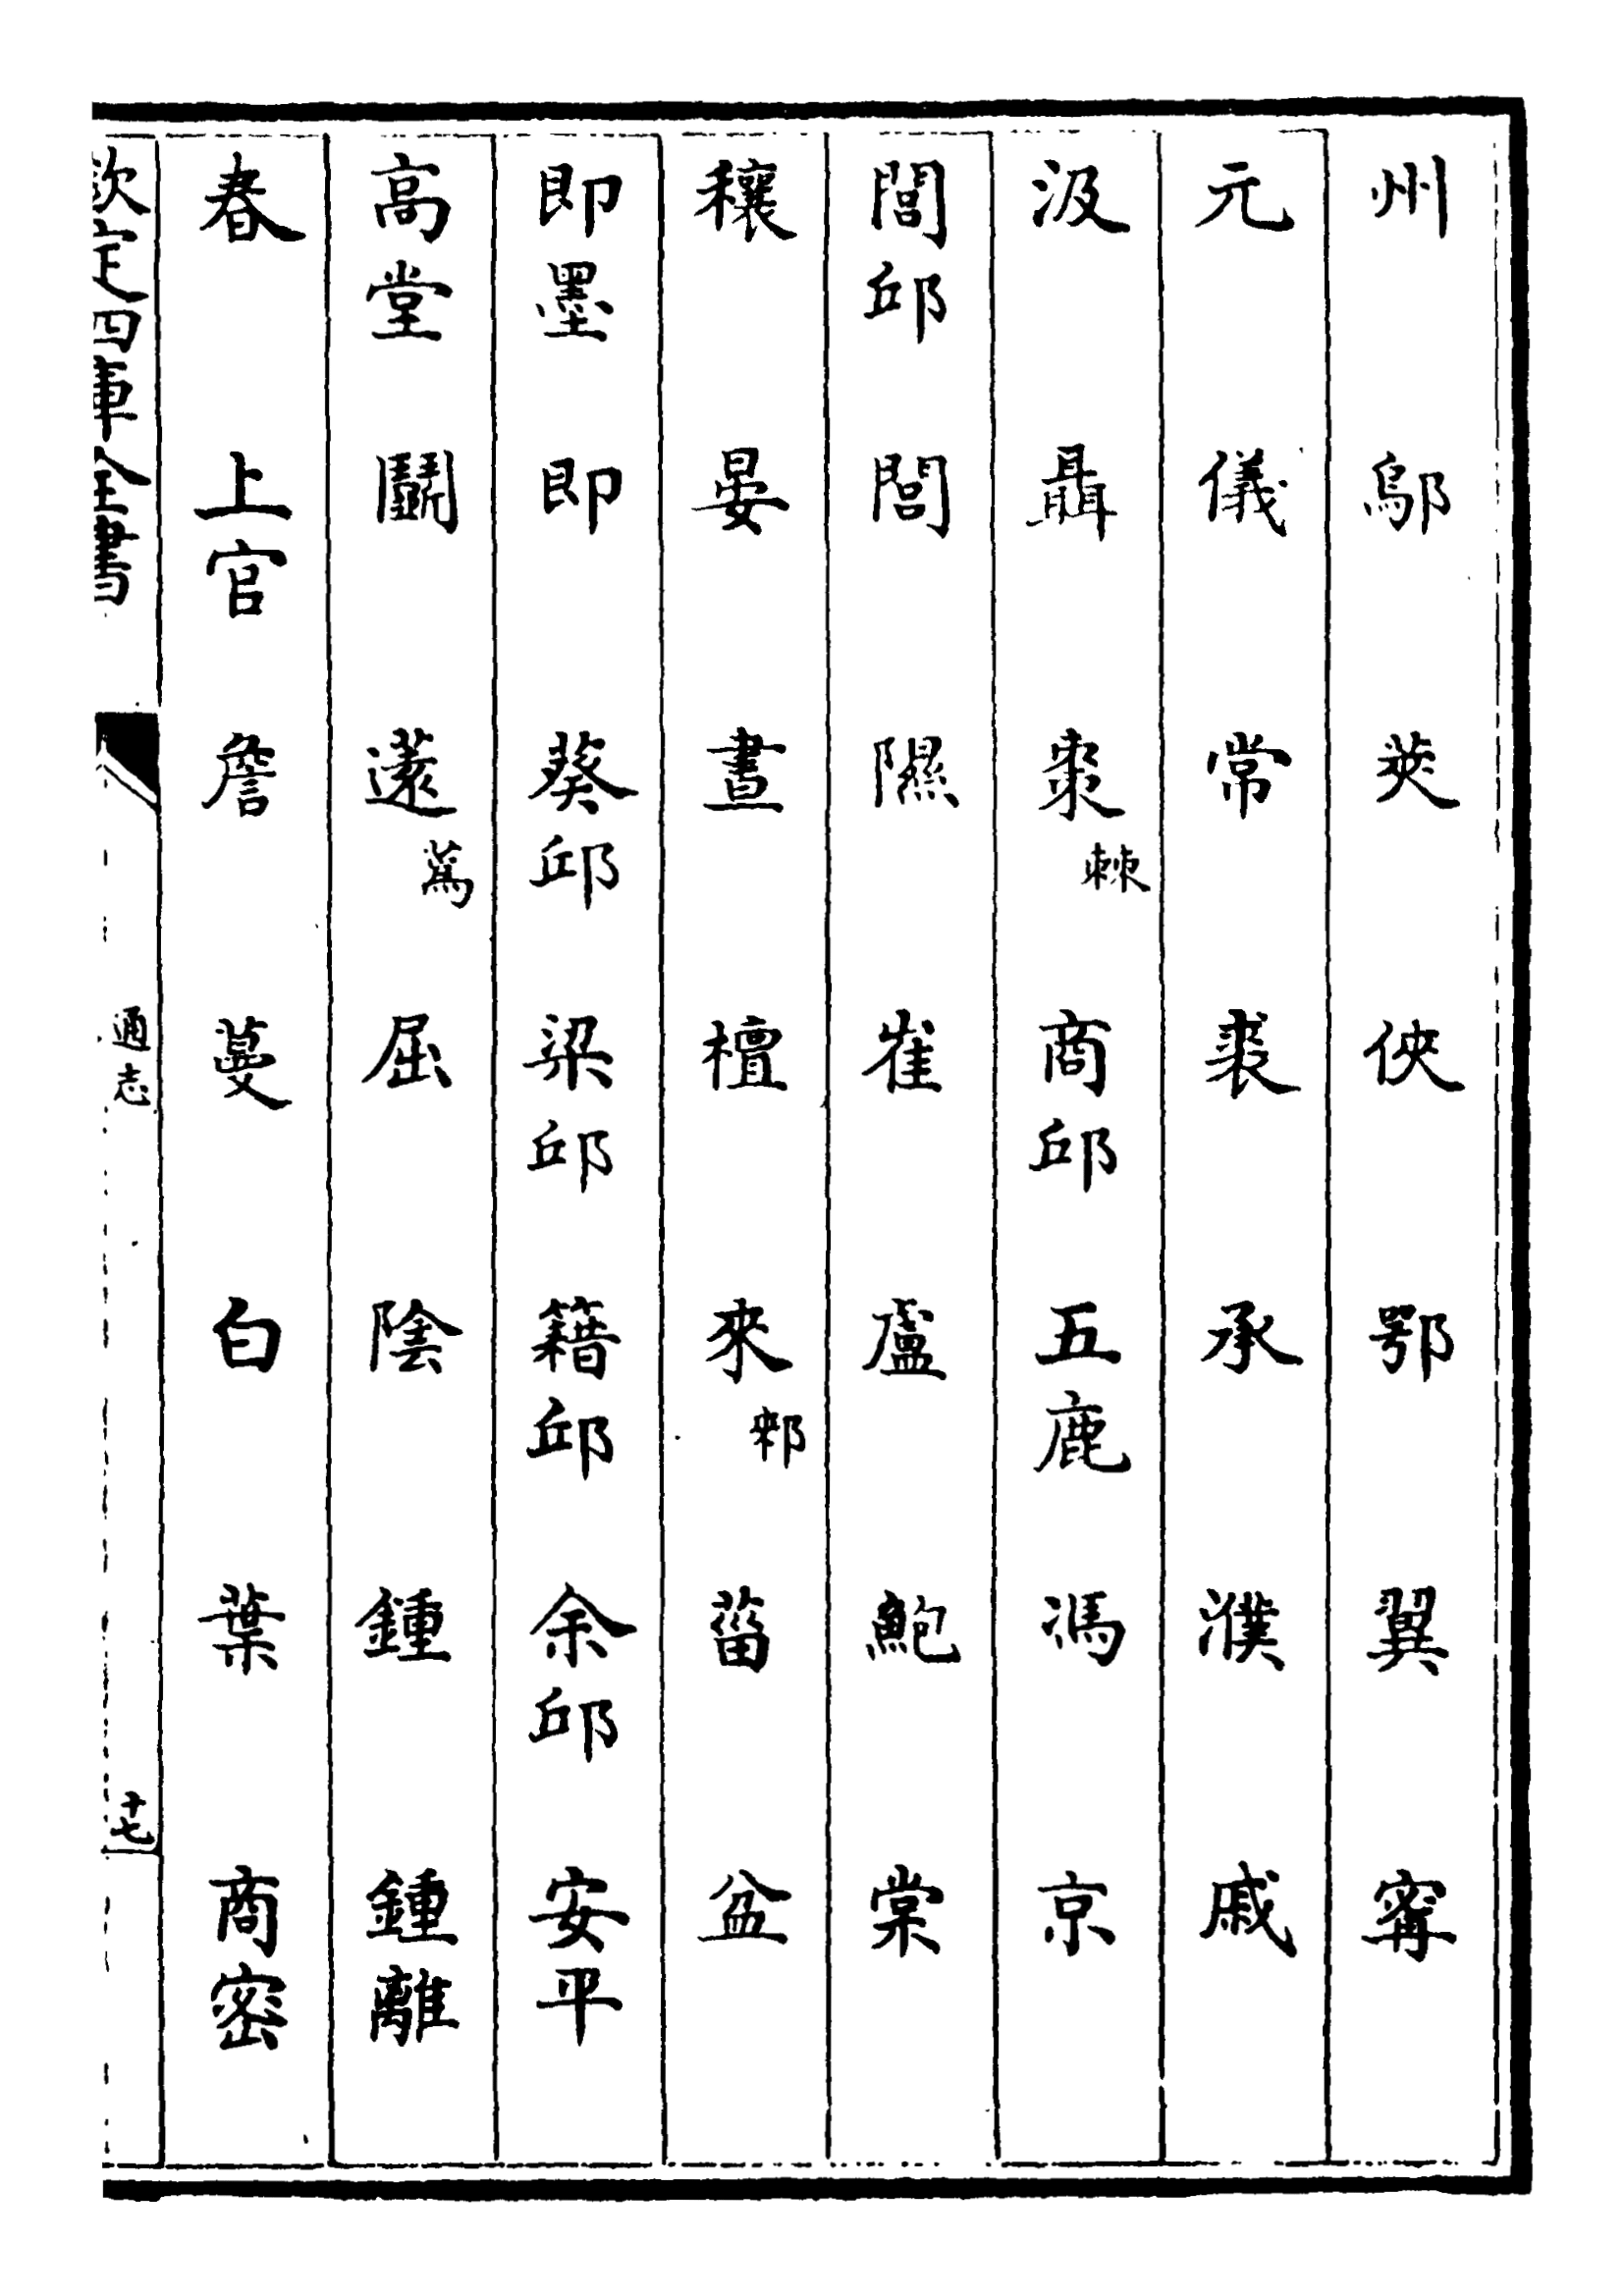 州 鄔 莢 俠 鄂 翼 寗
元 儀 常 裘 承 濮 戚
汲 聶 棗 棘 商邱 五鹿 馮 京
閭邱 閭 隰 崔 盧 鮑 棠
穰 晏 晝 檀 來 郲 菑 盆
即墨 即 葵邱 梁邱 籍邱 余邱 安平
高堂 鬭 薳 蒍 屈 陰 鍾 鍾離
舂 上官 詹 蔓 白 葉 商密
欽定四庫全書 通志 十七